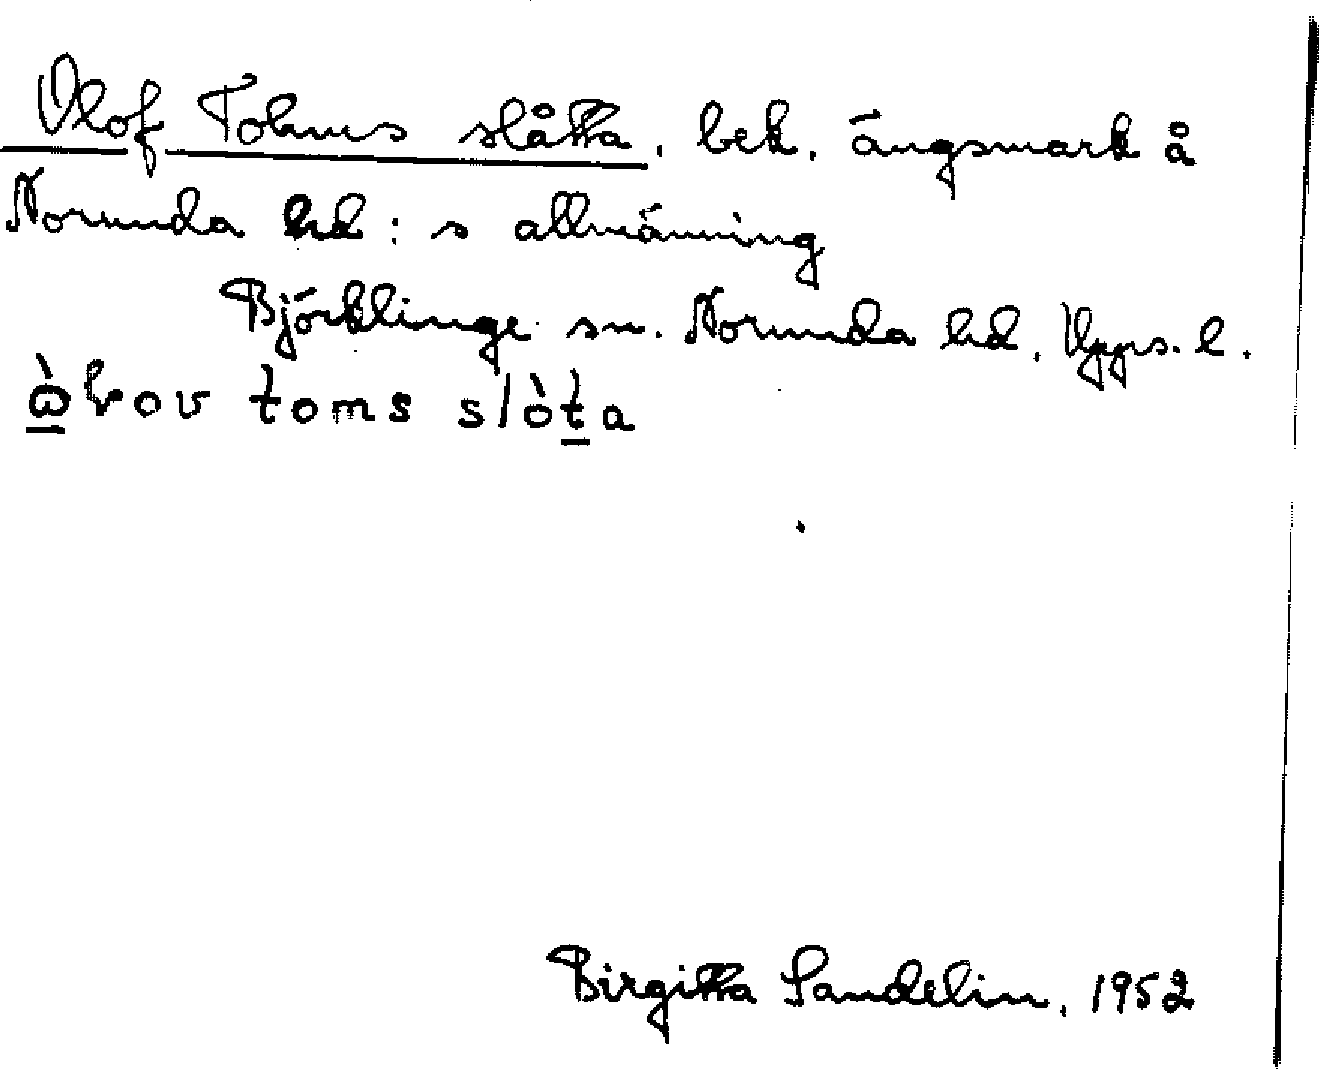 Olof Tohms slåtta. bek. ängsmark å
Norunda hd:s allmänning
Björklinge sn. Norunda hd. Upps. l.
toms slòta
Birgitta Sandelin, 1952